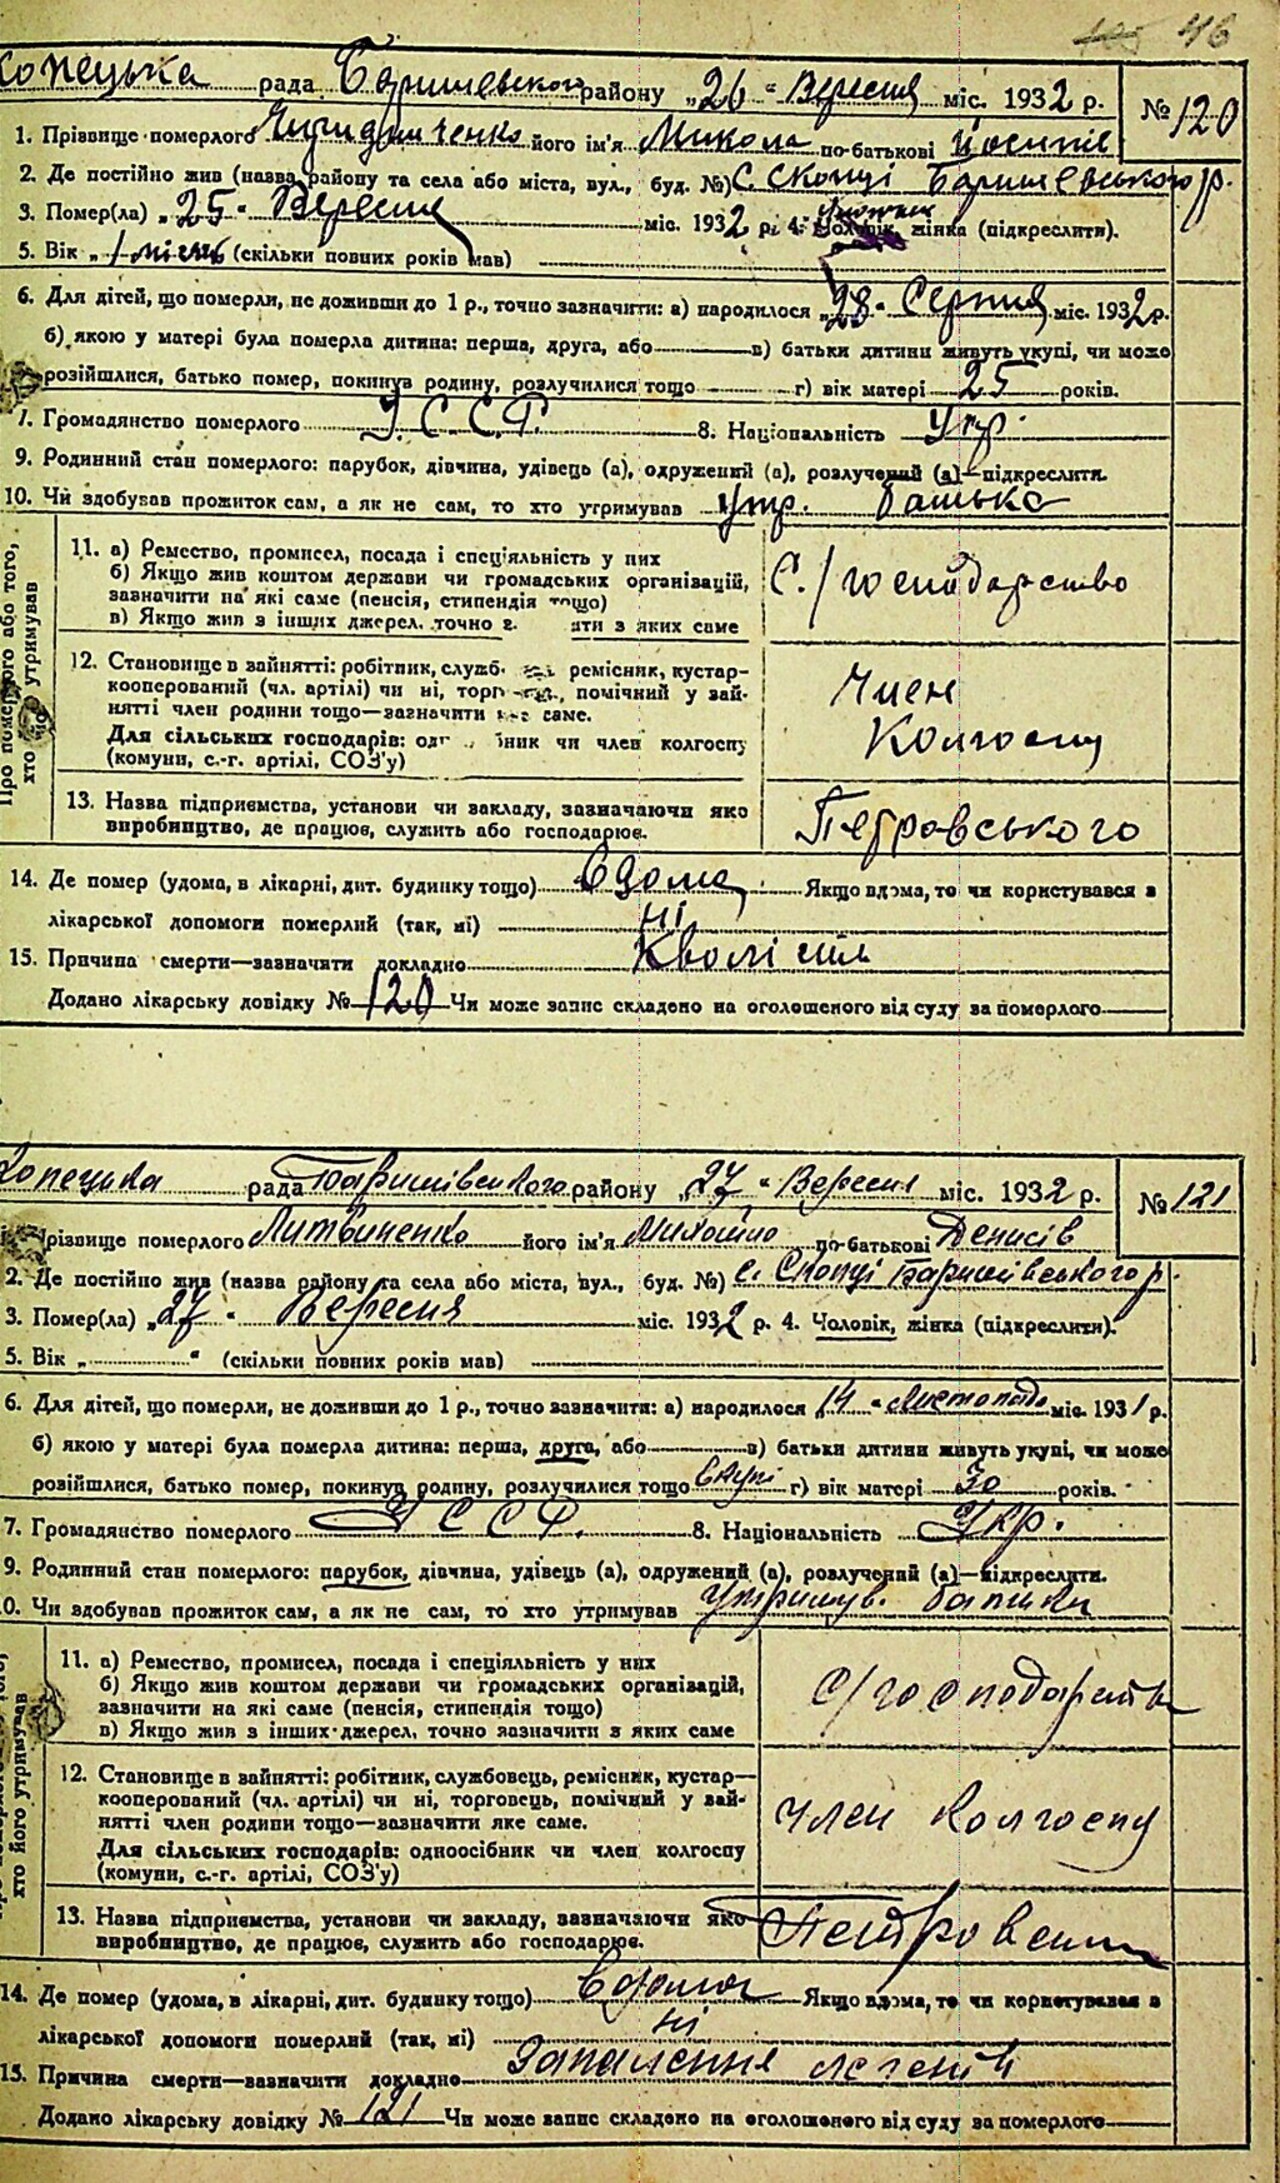 46
Копецька рада Баришевського району „26“ Вересня міс. 1932 р. № 120
1. Прізвище померлого його ім'я Микола по-батькові Йосипів
2. Де постійно жив (назва району та села або міста, вул., буд. №) С. Скопці Баришевського р.
3. Помер(ла) „25“ Вересня міс. 1932 р. 4. Чоловік, жінка (підкреслити).
5. Вік „1 місяць (скільки повних років мав)
6. Для дітей, що померли, не доживши до 1 р., точно зазначити: а) народилося „28“ Серпня міс. 1932 р.
б) якою у матері була померла дитина: перша, друга, або в) батьки дитини живуть укупі, чи може
розійшлися, батько помер, покинув родину, розлучилися тощо г) вік матері 25 років.
7. Громадянство померлого У.С.С.Р. 8. Національність Укр.
9. Родинний стан померлого: парубок, дівчина, удівець (а), одружений (а), розлучений (а)—підкреслити.
10. Чи здобував прожиток сам, а як не сам, то хто утримував утр. батько
Про померлого або того, хто його утримував
11. а) Ремество, промисел, посада і спеціяльність у них
б) Якщо жив коштом держави чи громадських організацій,
зазначити на які саме (пенсія, стипендія тощо)
в) Якщо жив з інших джерел, точно з яких саме
С./господарство
12. Становище в зайнятті: робітник, служб. ремісник, кустар-
кооперований (чл. артілі) чи ні, торг помічний у зай-
нятті член родини тощо—зазначити яке саме.
Для сільських господарів: одноосібник чи член колгоспу
(комуни, с.-г. артілі, СОЗ'у)
Член
Колгоспу
13. Назва підприємства, установи чи закладу, зазначаючи яко
виробництво, де працює, служить або господарює.
Петровського
14. Де помер (удома, в лікарні, дит. будинку тощо) Вдома Якщо вдома, то чи користувався з
лікарської допомоги померлий (так, ні) ні
15. Причина смерти—зазначити докладно Кволість
Додано лікарську довідку № 120 Чи може запис складено на оголошеного від суду за померлого
Копецька рада Баришівського району „27“ Вересня міс. 1932 р. № 121
Прізвище померлого Литвиненко його ім'я Михайло по-батькові Денисів
2. Де постійно жив (назва району та села або міста, вул., буд. №) с. Скопці Баришівського р.
3. Помер(ла) „27“ Вересня міс. 1932 р. 4. Чоловік, жінка (підкреслити).
5. Вік „ “ (скільки повних років мав)
6. Для дітей, що померли, не доживши до 1 р., точно зазначити: а) народилося „14“ Листопада міс. 1931 р.
б) якою у матері була померла дитина: перша, друга, або в) батьки дитини живуть укупі, чи може
розійшлися, батько помер, покинув родину, розлучилися тощо вкупі г) вік матері 30 років.
7. Громадянство померлого УССР. 8. Національність Укр.
9. Родинний стан померлого: парубок, дівчина, удівець (а), одружений (а), розлучений (а)—підкреслити.
0. Чи здобував прожиток сам, а як не сам, то хто утримував Утримув. батьки
хто його утримував
11. а) Ремество, промисел, посада і спеціяльність у них
б) Якщо жив коштом держави чи громадських організацій,
зазначити на які саме (пенсія, стипендія тощо)
в) Якщо жив з інших джерел, точно зазначити з яких саме
с/господарства
12. Становище в зайнятті: робітник, службовець, ремісник, кустар—
кооперований (чл. артілі) чи ні, торговець, помічний у зай-
нятті член родини тощо—зазначити яке саме.
Для сільських господарів: одноосібник чи член колгоспу
(комуни, с.-г. артілі, СОЗ'у)
член колгоспу
13. Назва підприємства, установи чи закладу, зазначаючи яко
виробництво, де працює, служить або господарює.
14. Де помер (удома, в лікарні, дит. будинку тощо) Вдома Якщо вдома, то чи користувався з
лікарської допомоги померлий (так, ні) ні
15. Причина смерти—зазначити докладно Запалення легенів
Додано лікарську довідку № 121 Чи може запис складено на оголошеного від суду за померлого